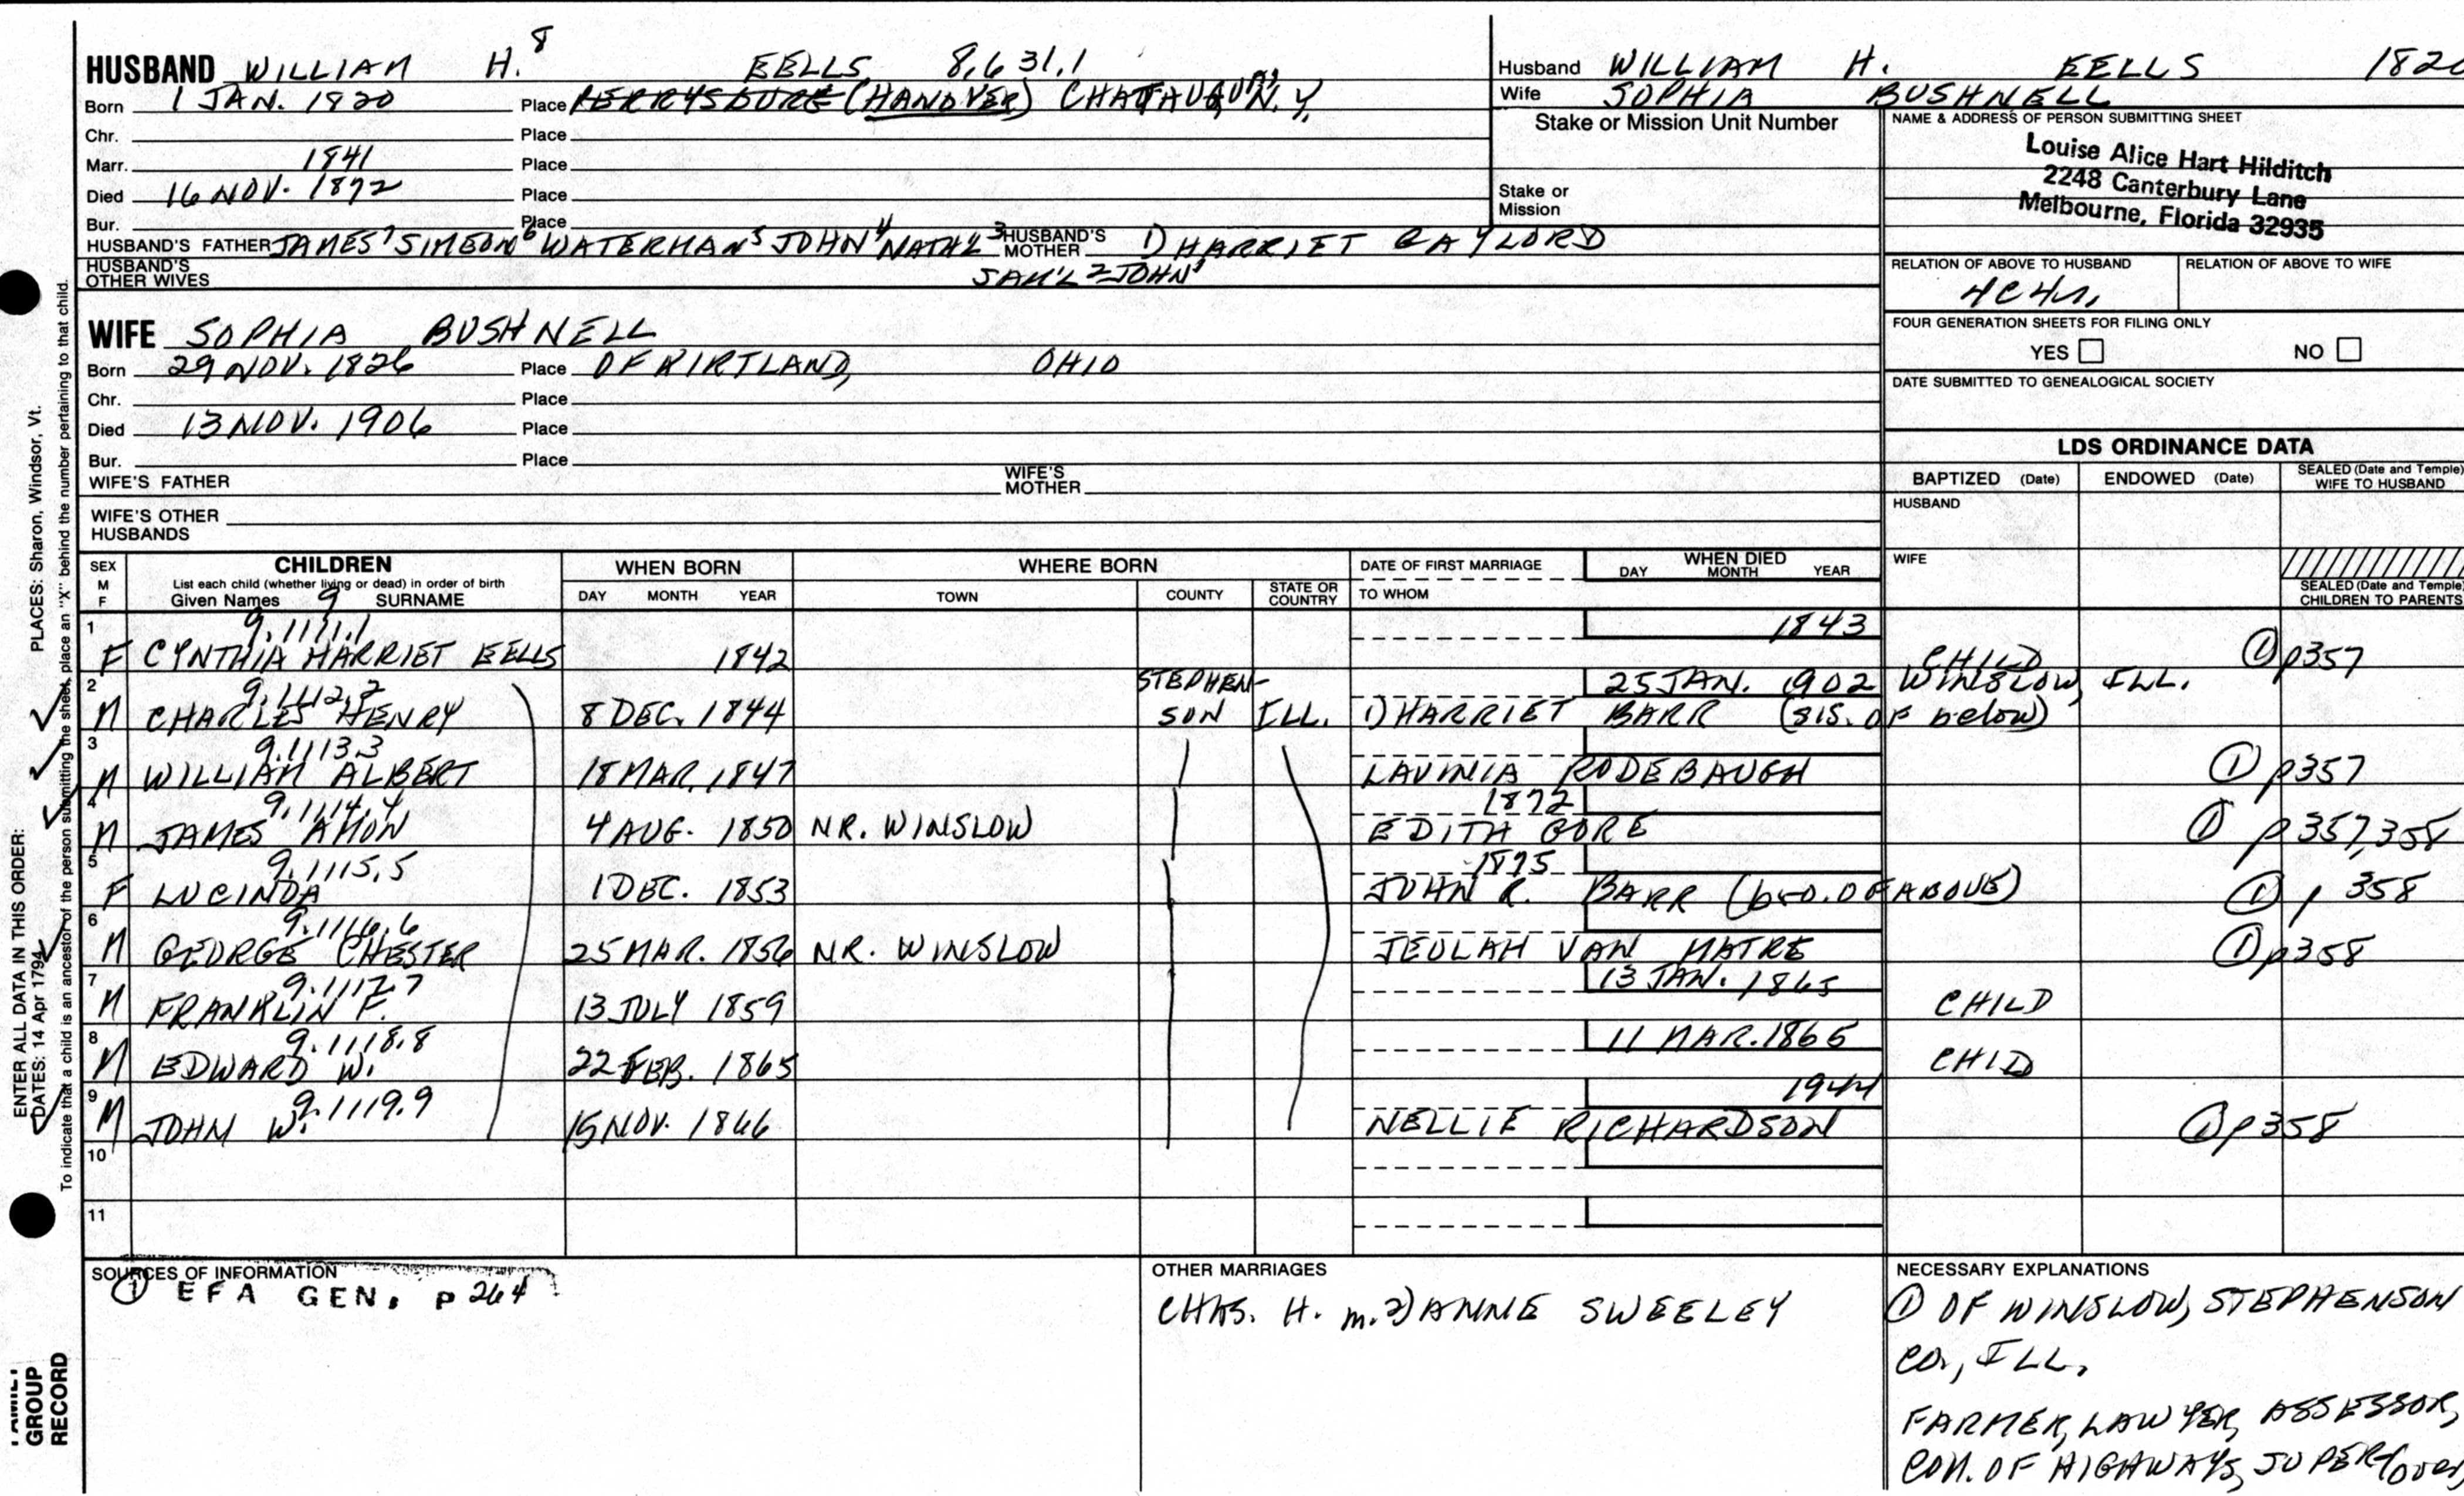 HUSBAND WILLIAM H.⁸ EELLS 8,631.1
Born 1 JAN. 1820 Place PERRYSBURG (HANOVER) CHATAUQUA, N.Y.
Chr. Place
Marr. 1841 Place
Died 16 NOV. 1892 Place
Bur. Place
HUSBAND'S FATHER JAMES⁷ SIMEON⁶ WATERMAN⁵ JOHN⁴ NATH'L³ HUSBAND'S MOTHER 1) HARRIET GAYLORD
SAM'L² JOHN¹
HUSBAND'S OTHER WIVES
WIFE SOPHIA BUSHNELL
Born 29 NOV. 1826 Place OF KIRTLAND, OHIO
Chr. Place
Died 13 NOV. 1906 Place
Bur. Place
WIFE'S FATHER WIFE'S MOTHER
WIFE'S OTHER HUSBANDS
Husband WILLIAM H. EELLS
Wife SOPHIA BUSHNELL
Stake or Mission Unit Number
Stake or Mission
NAME & ADDRESS OF PERSON SUBMITTING SHEET
Louise Alice Hart Hilditch
2248 Canterbury Lane
Melbourne, Florida 32935
RELATION OF ABOVE TO HUSBAND RELATION OF ABOVE TO WIFE
4C4R
FOUR GENERATION SHEETS FOR FILING ONLY
YES NO
DATE SUBMITTED TO GENEALOGICAL SOCIETY
LDS ORDINANCE DATA
BAPTIZED (Date) ENDOWED (Date) SEALED (Date and Temple) WIFE TO HUSBAND
HUSBAND
WIFE
SEALED (Date and Temple) CHILDREN TO PARENTS
SEX M F
CHILDREN
List each child (whether living or dead) in order of birth
Given Names 9 SURNAME
WHEN BORN
DAY MONTH YEAR
WHERE BORN
TOWN COUNTY STATE OR COUNTRY
DATE OF FIRST MARRIAGE
TO WHOM
WHEN DIED
DAY MONTH YEAR
1 9.1111.1 1843
F CYNTHIA HARRIET EELLS 1842 CHILD ① p357
2 9.1112.2 STEPHEN- 25 JAN. 1902 WINSLOW, ILL.
M CHARLES HENRY 8 DEC. 1844 SON ILL. 1) HARRIET BARR (SIS. OF below)
3 9.1113.3
M WILLIAM ALBERT 18 MAR. 1847 LAVINIA RODEBAUGH ① p357
4 9.1114.4 1872
M JAMES AMON 4 AUG. 1850 NR. WINSLOW EDITH GORE ① p357,358
5 9.1115.5 1875
F LUCINDA 1 DEC. 1853 JOHN R. BARR (bro. OF ABOVE) ① p 358
6 9.1116.6
M GEORGE CHESTER 25 MAR. 1856 NR. WINSLOW JEULAH VAN MATRE ① p358
7 9.1117.7 13 JAN. 1865
M FRANKLIN F. 13 JULY 1859 CHILD
8 9.1118.8 11 MAR. 1865
M EDWARD W. 22 FEB. 1865 CHILD
9 9.1119.9 1944
M JOHN W. 15 NOV. 1866 NELLIE RICHARDSON ① p358
10
11
SOURCES OF INFORMATION
① EFA GEN. p 264
OTHER MARRIAGES
CHAS. H. m. 2) ANNE SWEELEY
NECESSARY EXPLANATIONS
① OF WINSLOW, STEPHENSON
CO., ILL.
FARMER, LAWYER, ASSESSOR,
COM. OF HIGHWAYS, SUPER (over)
ENTER ALL DATA IN THIS ORDER:
DATES: 14 Apr 1794 PLACES: Sharon, Windsor, Vt.
To indicate that a child is an ancestor of the person submitting the sheet, place an "X" behind the number pertaining to that child.
GROUP
RECORD